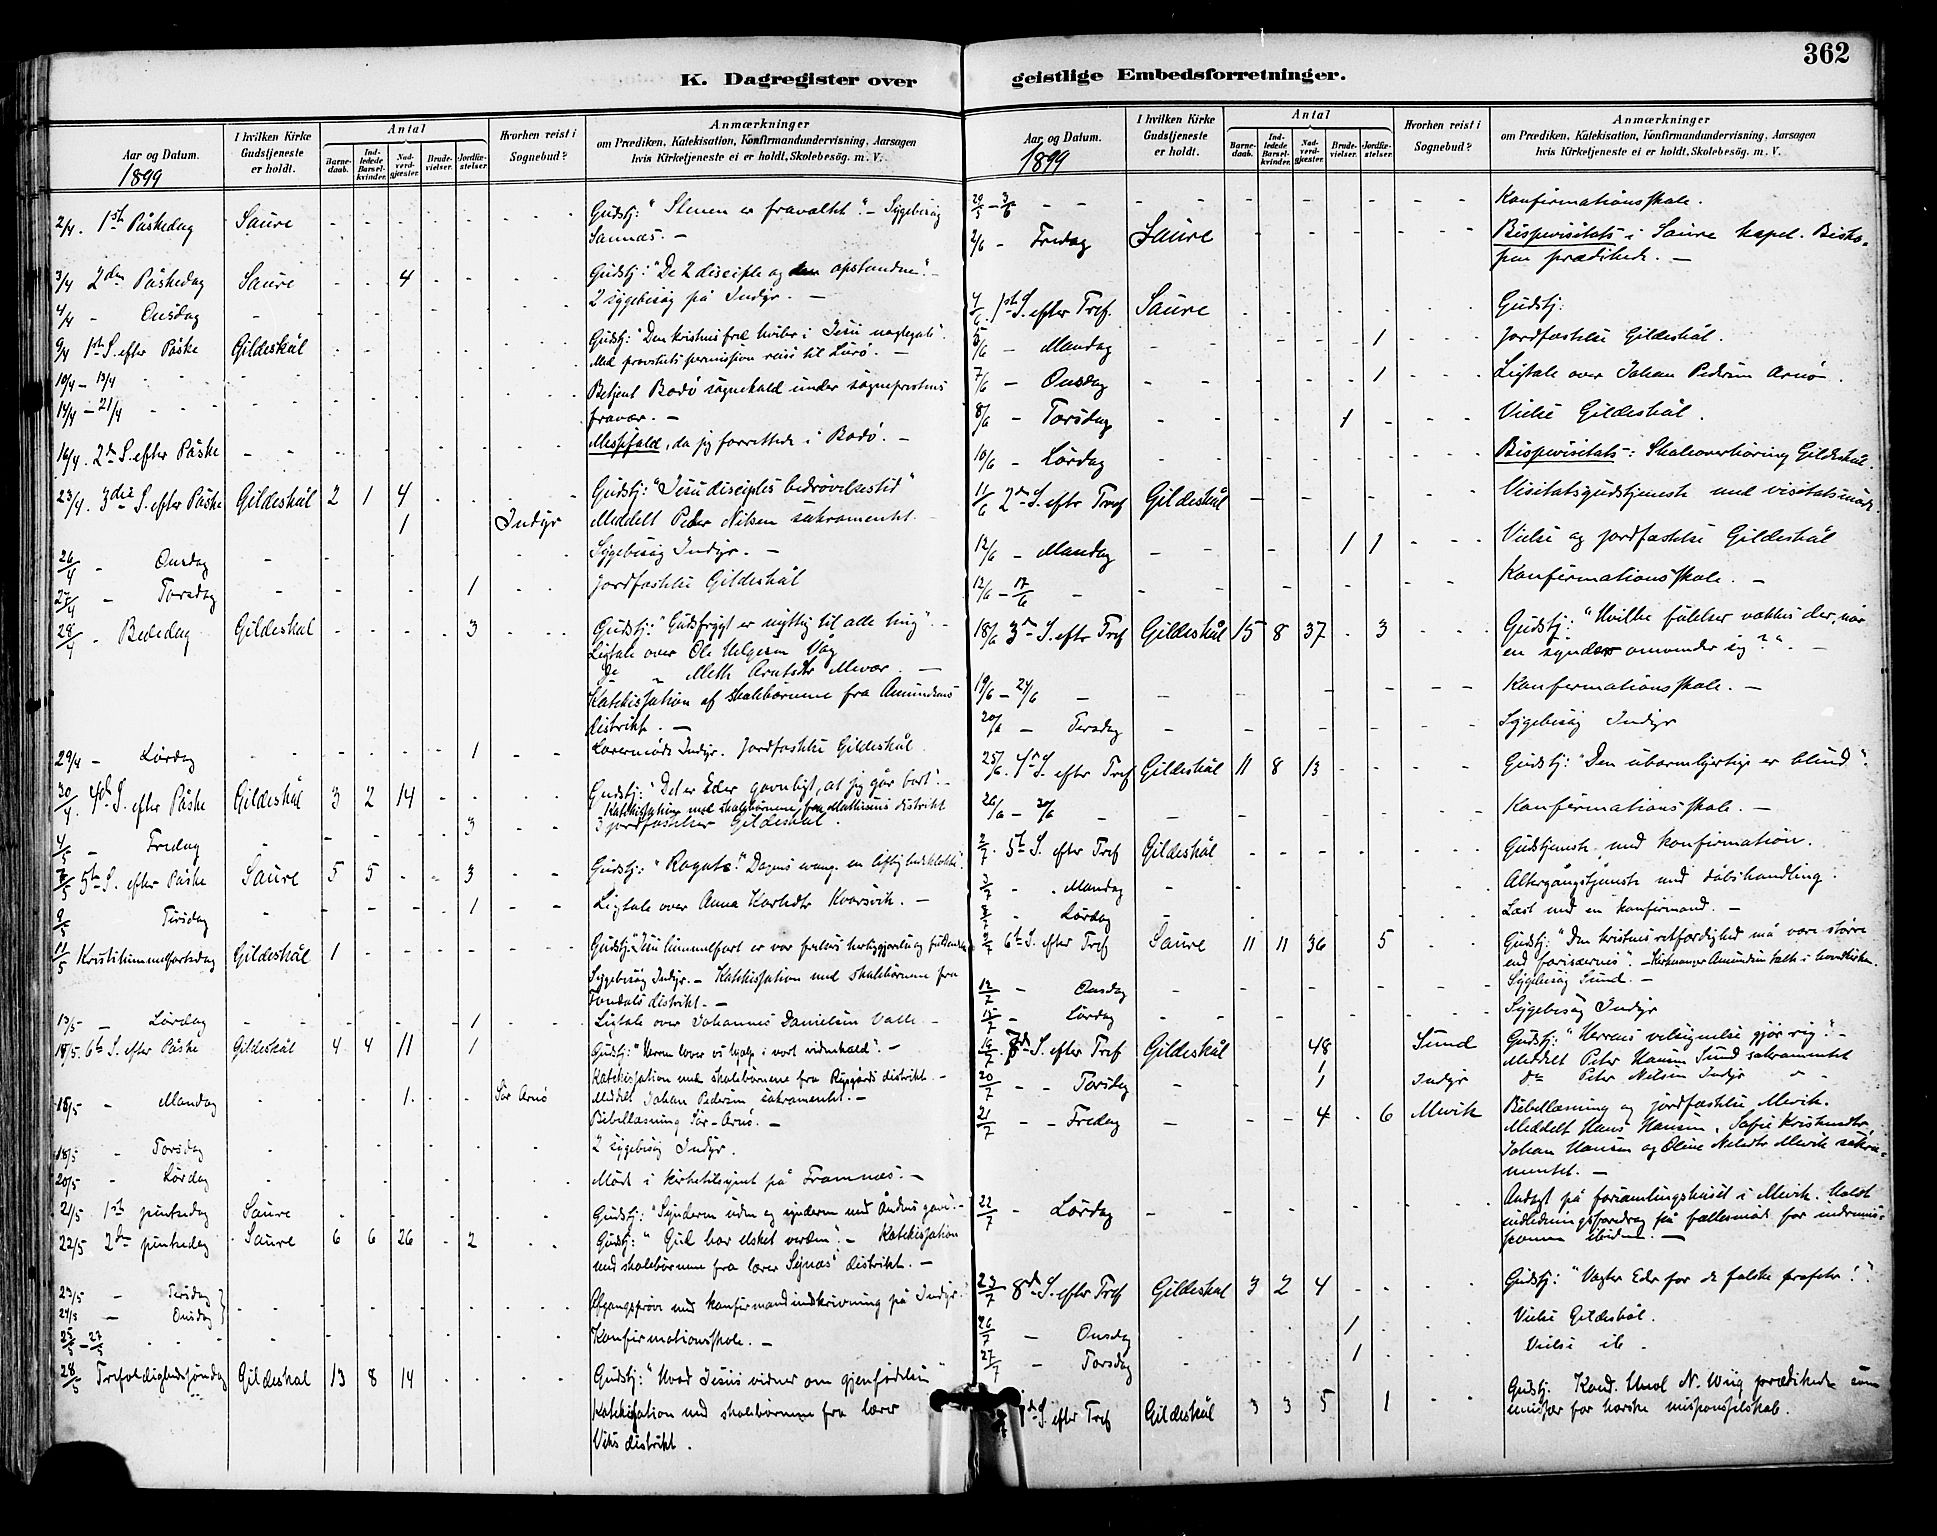 362
K. Dagregister over geistlige Embedsforretninger.
Aar og Datum.
1899
I hvilken Kirke Gudstjeneste er holdt.
Antal
Barne-daab.
Ind-ledede Barsel-kvinder.
Nad-verd-gjester.
Brude-vielser.
Jordfæ-stelser.
Hvorhen reist i Sognebud?
Anmærkninger
om Prædiken, Katekisation, Konfirmandundervisning, Aarsagen
hvis Kirketjeneste ei er holdt, Skolebesög. m. V.
2/4 1ste Påskedag Saure - - - - - Gudstj: "Stenen er fravæltet". - Sygebesøg
Sannæs. -
3/4 2den Påskedag Saure - - 4 - - Gudstj: "De 2 disciple og den opstandne". -
4/4 - Onsdag - 2 sygebesøg på Indyr. -
9/4 1ste S. efter Påske Gildeskål - - - Gudstj: "Den kristnes fred hviler i Jesu naglegab".
Med provstets permission reise til Lurö. -
10/4 - 13/4
14/4 - 21/4 Betjent Bodø sognekald under sogneprestens
fravær. -
16/4. 2den S. efter Påske - - Messefald, da jeg forrettede i Bodø. -
23/4. 3die S. efter Påske Gildeskål 2 1 4 Gudstj: "Jesu disciples bedrøvelsestid"
1 Indyr Meddelt Peder Nilsen sakramentet.
26/4 - Onsdag - Sygebesøg Indyr. -
27/4 - Torsdag - 1 Jordfæstelse Gildeskål
28/4 - Bededag Gildeskal - - - - 3 Gudstj: "Gudsfrygt er nyttig til alle ting". -
Ligtale over Ole Helgesen Våg
Do Meth Arntsdtr Mevær. -
Katekisation af skolebørnene fra Amundsens
distrikt. -
29/4 - Lördag - 1 Lærermöde Indyr. Jordfæstelse Gildeskål.
30/4. 4de S. efter Påske Gildeskål 3 2 14 - Gudstj: "Det er Eder gavnligt, at jeg går bort". -
Katekisation med skolebørnene fra Mathisens distrikt
4/5 - Fredag - 3 3 jordfæstelser Gildeskål.
7/5 5te S. efter Påske Saure 5 5 - - 3 Gudstj: "Rogate." Dagens evang. en liflig bedeklokke.
9/5 Tirsdag - 1 Ligtale over Anna Karlsdtr Kvarsvik. -
11/5 Kristi himmelfartsdag Gildeskål 1 Gudstj: "Jesu himmelfart er vor frelses
Sygebesøg Indyr. - Katekisation med skolebørnene fra
Tondals distrikt. -
13/5 - Lördag - 1 Ligtale over Johannes Danielsen Valle -
14/5. 6te S. efter Påske Gildeskål 4 4 11 1 Gudstj: "Herren lover os hjælp i vort vidnekald". -
Katekisation med skolebørnene fra distrikt. -
15/5 - Mandag - 1. Sör Arnö Meddelt Johan Pedersen sakramentet. -
Bibellæsning Sör-Arnö. -
18/5 - Torsdag - 2 sygebesøg Indyr.
20/5 - Lördag - Möde i kirketilsynet på Framnæs. -
21/5 1ste pintsedag Saure - Gudstj: "Synderen uden og synderen med Åndens gave. -
22/5 2den pintsedag - Saure 6 6 26 - 2 Gudstj: "Gud har elsket verden". - Katekisation
med skolebørnene fra lærer distrikt. -
23/5 - Tirsdag
24/5 - Onsdag Afgangsprøve med konfirmandindskrivning på Indyr.
25/5 - 27/5 Konfirmationsskole. -
28/5 Trefoldighedssöndag Gildeskal 13 8 14 Gudstj: "Hvad Jesus vidner om gjenfødelsen"
Katekisation med skolebørnene fra lærer
Viks distrikt.
Aar og Datum.
1899
I hvilken Kirke Gudstjeneste er holdt.
Antal
Barne-daab.
Ind-ledede Barsel-kvinder.
Nad-verd-gjester.
Brude-vielser.
Jordfæ-stelser.
Hvorhen reist i Sognebud?
Anmærkninger
om Prædiken, Katekisation, Konfirmandundervisning, Aarsagen
hvis Kirketjeneste ei er holdt, Skolebesög. m. V.
29/5 - 3/6 - - Konfirmationsskole.
2/6 - Fredag Saure - Bispevisitats i Saure kapel. Bisko-
pen prædikede. -
4/6. 1ste S. efter Tref. Saure - Gudstj:
5/6 - Mandag - 1 Jordfæstelse Gildeskål.
7/6 - Onsdag - 1 Ligtale over Johan Pedersen Arnø.
8/6 - Torsdag - 1 - Vielse Gildeskål.
10/6 - Lördag - Bispevisitats: Skoleoverhøring Gildeskål.
11/6 2den S. eftr Tref Gildeskål - Visitatsgudstjeneste med visitatsmøde.
12/6 - Mandag - 1 1 Vielse og jordfæstelse Gildeskål
12/6 - 17/6 - Konfirmationsskole. -
18/6 3die S. eftr Tref Gildeskål 15 8 37 - 3 Gudstj: "Hvilke følelser vækkes der, når
en synder omvender sig?". -
19/6 - 24/6 - Konfirmationsskole. -
20/6 - Tirsdag - Sygebesøg Indyr
25/6. 4de S. efter Tref Gildeskål 11 8 13 - Gudstj: "Den ubarmhjertige er blind".
26/6 - 30/6 - Konfirmationsskole. -
2/7. 5te S. efter Tref Gildeskål - Gudstjeneste med konfirmation.
3/7 - Mandag - Altergangstjeneste med dåbshandling.
8/7 - Lördag - Læst med en konfirmand. -
9/7 6te S. efter Tref Saure 11 11 36 5 Gudstj: "Den kristnes retfærdighed må være større
end farisæernes". - Kirkesanger Amundsen
12/7 - Onsdag - Sygebesøg Sund. -
15/7 - Lördag - Sygebesøg Indyr
16/7. 7de S. efter Tref Gildeskål 48 Gudstj: "Herrens velsignelse gjør rig". -
1 Sund Meddelt Peter Hansen Sund sakramentet
20/7 - - Torsdag - 1 Indyr do Peter Nilsen Indyr
21/7 - - Fredag - 4 - 6 Mevik Bibellæsning og jordfæstelse Mevik.
Meddelt Hans Hansen, Sofie Kristensdtr,
Johan Hansen og Oline Nilsdtr Mevik sakra-
mentet. -
22/7 - Lördag - Andagt på forsamlingshuset i Mevik. Holdt
indledningsforedrag på fællesmøde for indremis-
sionen ibidem. -
23/7 8de S. eftr Tref Gildeskal 3 2 4 - Gudstj: "Vogter Eder for de falske profeter!".
26/7 - Onsdag - 1 Vielse Gildeskål.
27/7 - Torsdag - 1 Vielse ib.
S. efter Tref Gildeskål 3 3 5 1 Gudstj. Kand. theol N. Wiig prædikede som
emissær for norske missionsselskab.